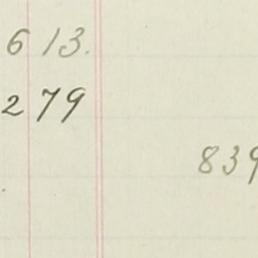 613.
279
839